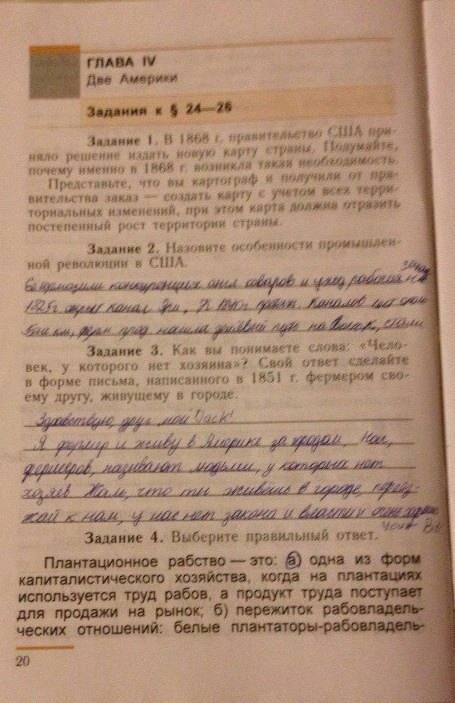 ГЛАВА IV
Две Америки
Задания к § 24—26
Задание 1. В 1868 г. правительство США при-
няло решение издать новую карту страны. Подумайте,
почему именно в 1868 г. возникла такая необходимость.
Представьте, что вы картограф и получили от пра-
вительства заказ — создать карту с учетом всех терри-
ториальных изменений, при этом карта должна отразить
постепенный рост территории страны.
Задание 2. Назовите особенности промышлен-
ной революции в США.
конкурирующих англ товаров и уход рабочих на запад
1825г канал Эри, К каналов
км, на Восток, стали
Задание 3. Как вы понимаете слова: «Чело-
век, у которого нет хозяина»? Свой ответ сделайте
в форме письма, написанного в 1851 г. фермером сво-
ему другу, живущему в городе.
Здравствуй, друг мой Jack!
Я фермер и живу в Америке за городом. Нас,
фермеров, называют людьми, у которых нет
хозяев. Жаль, что ты живёшь в городе, переез-
жай к нам, у нас нет закона и власти и
Задание 4. Выберите правильный ответ.
Плантационное рабство — это: а) одна из форм
капиталистического хозяйства, когда на плантациях
используется труд рабов, а продукт труда поступает
для продажи на рынок; б) пережиток рабовладель-
ческих отношений: белые плантаторы-рабовладель-
20